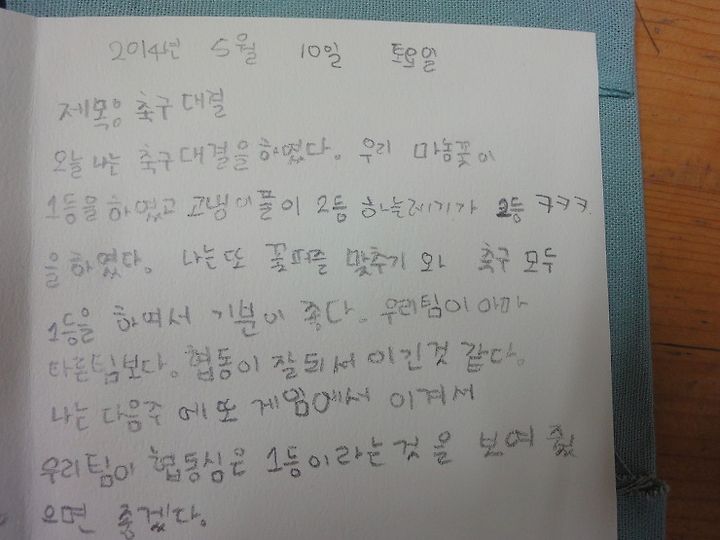 2014년 5월 10일 토요일
제목: 축구 대결
오늘 나는 축구 대결을 하였다. 우리 마농꽃이
1등을 하였고 고냉이풀이 2등 하늘레기가 2등 ㅋㅋㅋ
을 하였다. 나는 또 꽃퍼즐 맞추기 와 축구 모두
1등을 하여서 기분이 좋다. 우리팀이 아마
타른팀보다. 협동이 잘되서 이긴것 같다.
나는 다음주 에 또 게임에서 이겨서
우리팀이 협동심은 1등이라는 것을 보여 줬
으면 좋겠다.